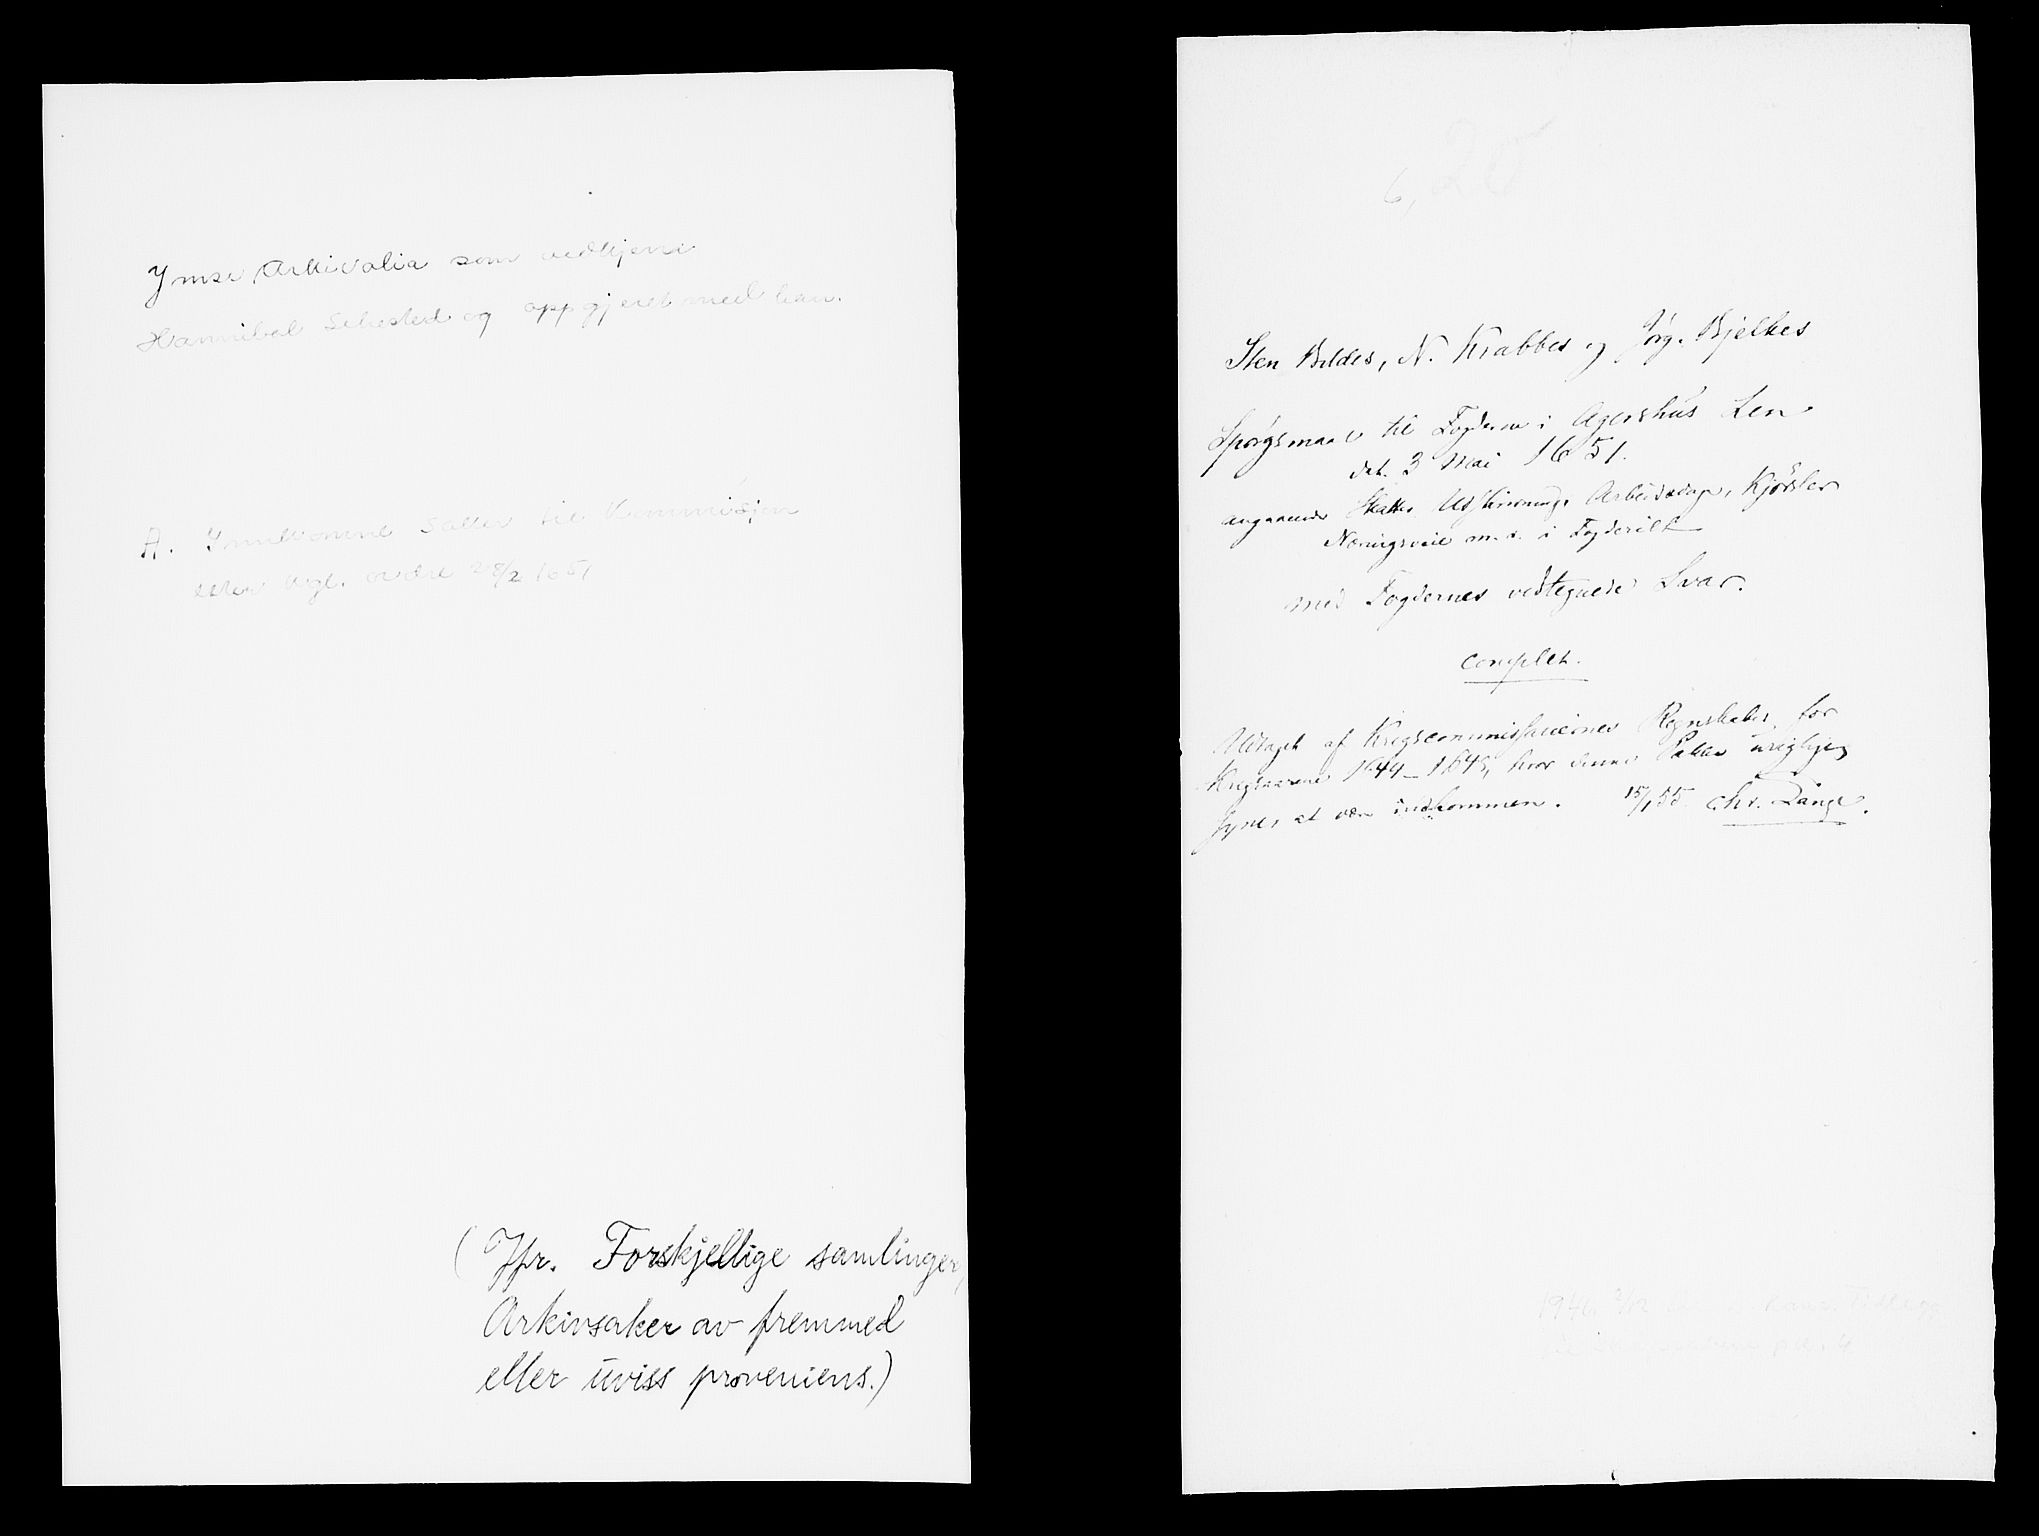 Ymse Arkivalia som vedkjem
Hannibal Sehested og oppgjeret med han.
A. Innkomne saker til Kommisjon
etter kgl. ordre 28/2 1651
(Jfr. Forskjellige samlinger,
Arkivsaker av fremmed
eller uviss proveniens.)
6, 20
Sten Bildes, N. Krabbes og Jørg. Bjelkes
Spørgsmaal til Fogderne i Agershus Len
dat. 3 Mai 1651.
angaaende Skatter, Udskrivninger, Arbeidsdage, Kjørsler
Næringsveie m.v. i Fogderiet
med Fogdernes vedtegnede Svar.
complet.
Udtaget af Krigscommissairernes Regnskaber for
Krigsaarene 1644–1645, hvor denne Pakke urigtigen
synes at være indkommen. 15/1 55. Chr. Lange.
1946